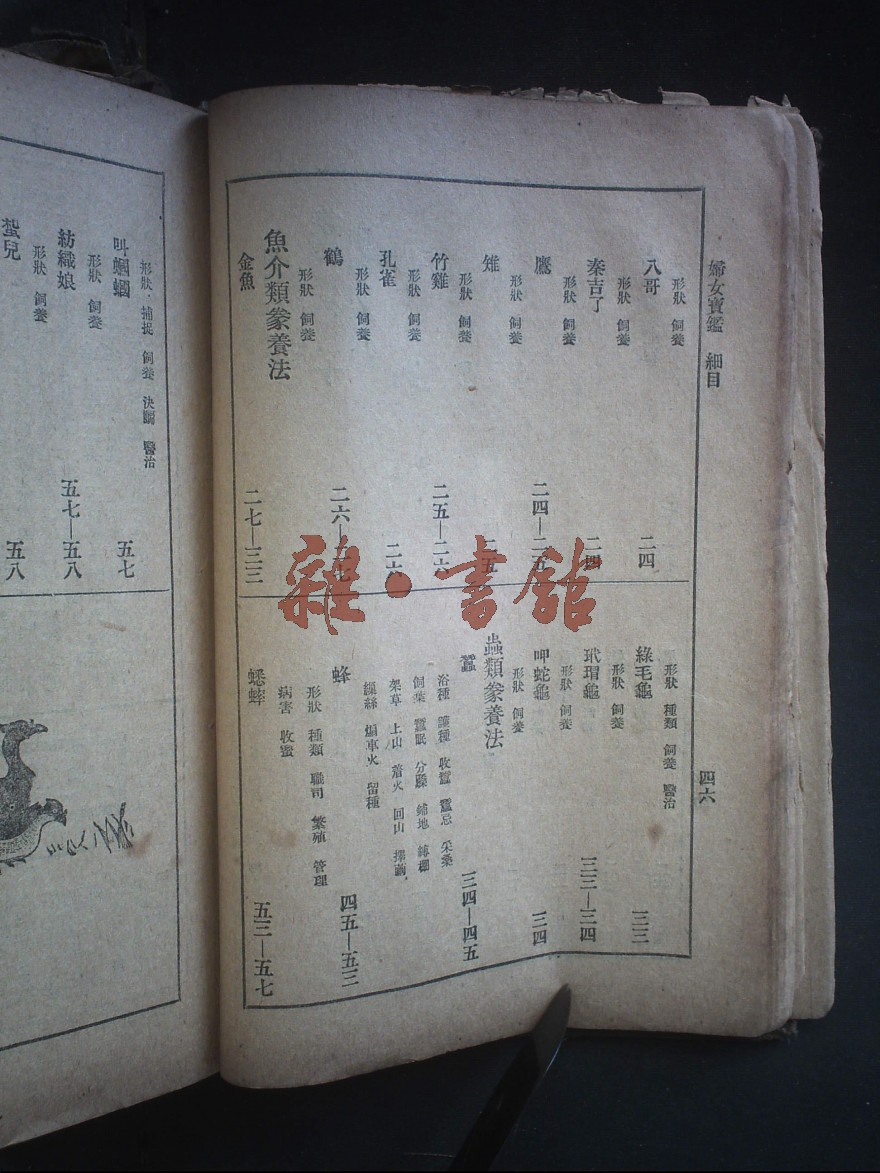 婦女寶鑑 細目
四六
形狀 飼養
八哥 二四
形狀 飼養
秦吉了 二四
形狀 飼養
鷹 二四—二五
形狀 飼養
雉 二五
形狀 飼養
竹雞 二五—二六
形狀 飼養
孔雀 二六
形狀 飼養
鶴 二六—二七
形狀 飼養
魚介類豢養法
金魚 二七—三三
形狀 種類 飼養 醫治
綠毛龜 三三
形狀 飼養
玳瑁龜 三三—三四
形狀 飼養
呷蛇龜 三四
形狀 飼養
蟲類豢養法
蠶 三四—四五
浴種 收蠶 蠶忌 采桑
飼葉 蠶眠 分擡 鋪地 縛棚
架草 上山 着火 回山 擇繭
繅絲 留種
蜂 四五—五三
形狀 種類 職司 繁殖 管理
病害 收蜜
蟋蟀 五三—五七
形狀 捕捉 飼養 決鬬 醫治
叫蟈蟈 五七
形狀 飼養
紡織娘 五七—五八
形狀 飼養
蜇兒 五八
雜·書館